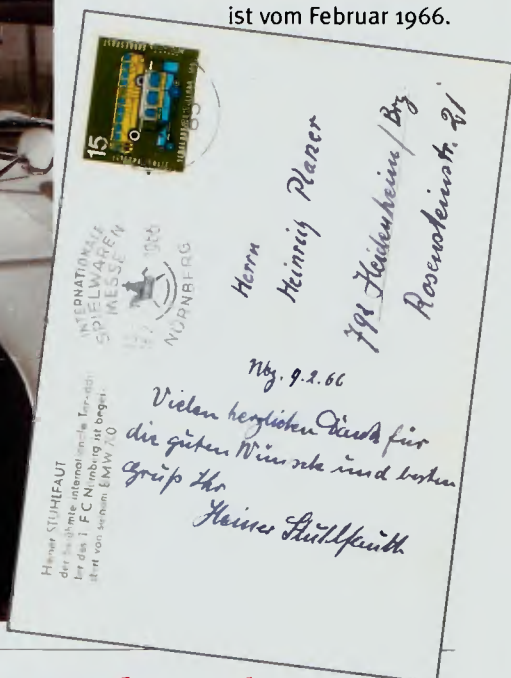 ist vom Februar 1966.
15
INTERNATIONALE
SPIELWAREN
MESSE
1966
NÜRNBERG
Herrn
Heinrich Planer
792 Heidenheim/Brz.
Rosensteinstr. 21
Nbg. 9.2.66
Vielen herzlichen Dank für
die guten Wünsche und besten
Gruß Ihr
Heiner Stuhlfauth
Heiner STUHLFAUT
der berühmte internationale Tor-
ter des 1. F C Nürnberg ist begei-
stert von seinem BMW 700